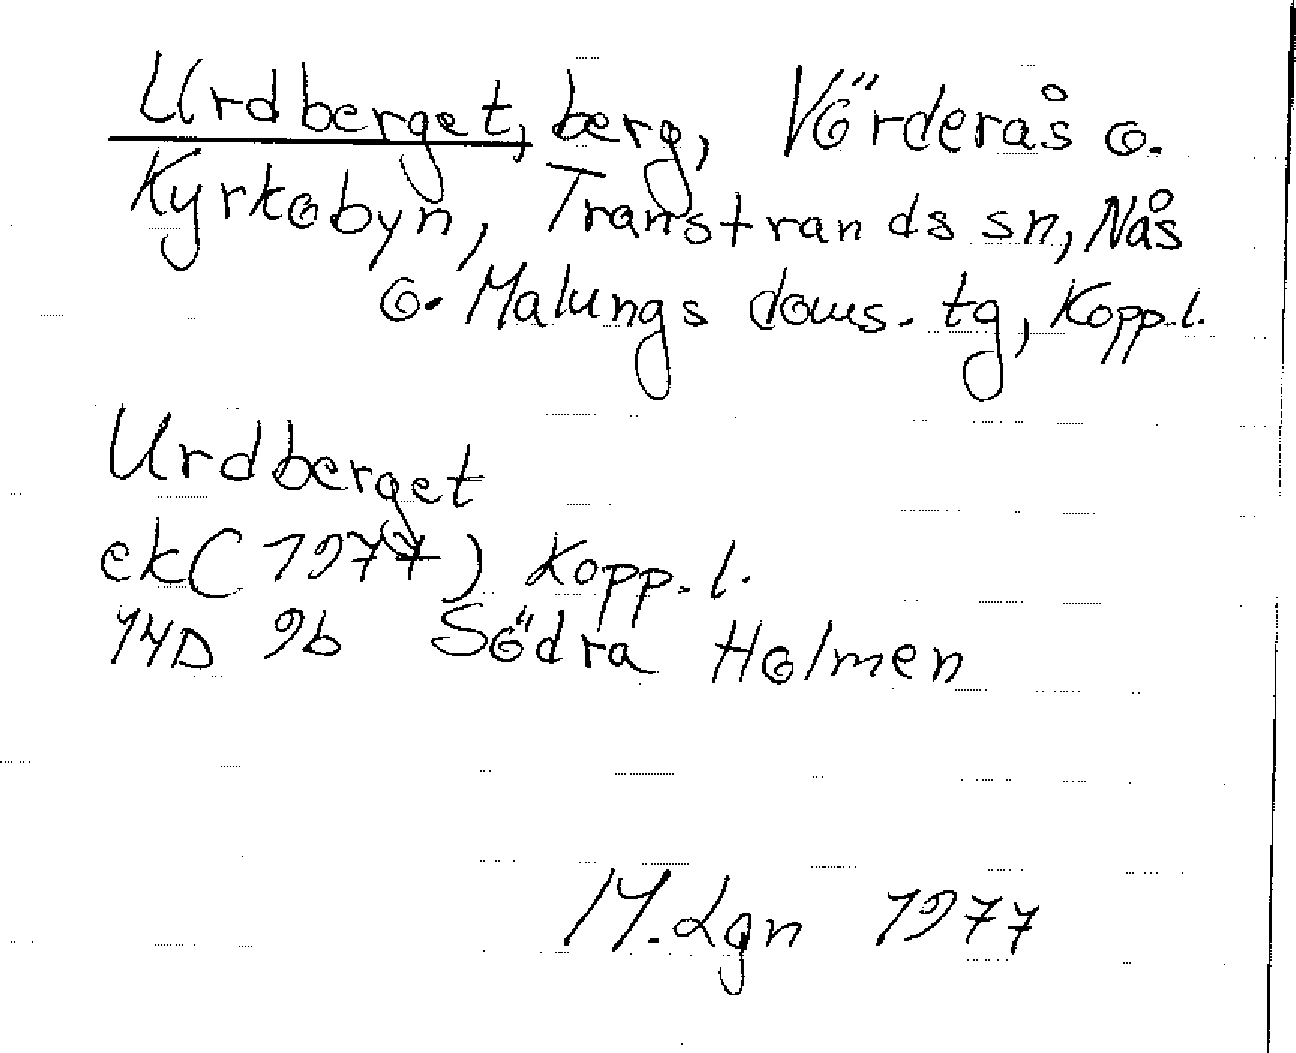 Urdberget, berg, Vörderås o.
Kyrkobyn, Transtrands sn, Nås
o. Malungs doms. tg, Kopp.l.
Urdberget
ek (1977) Kopp. l.
14D 9b Södra Holmen
M. Lgn 1977